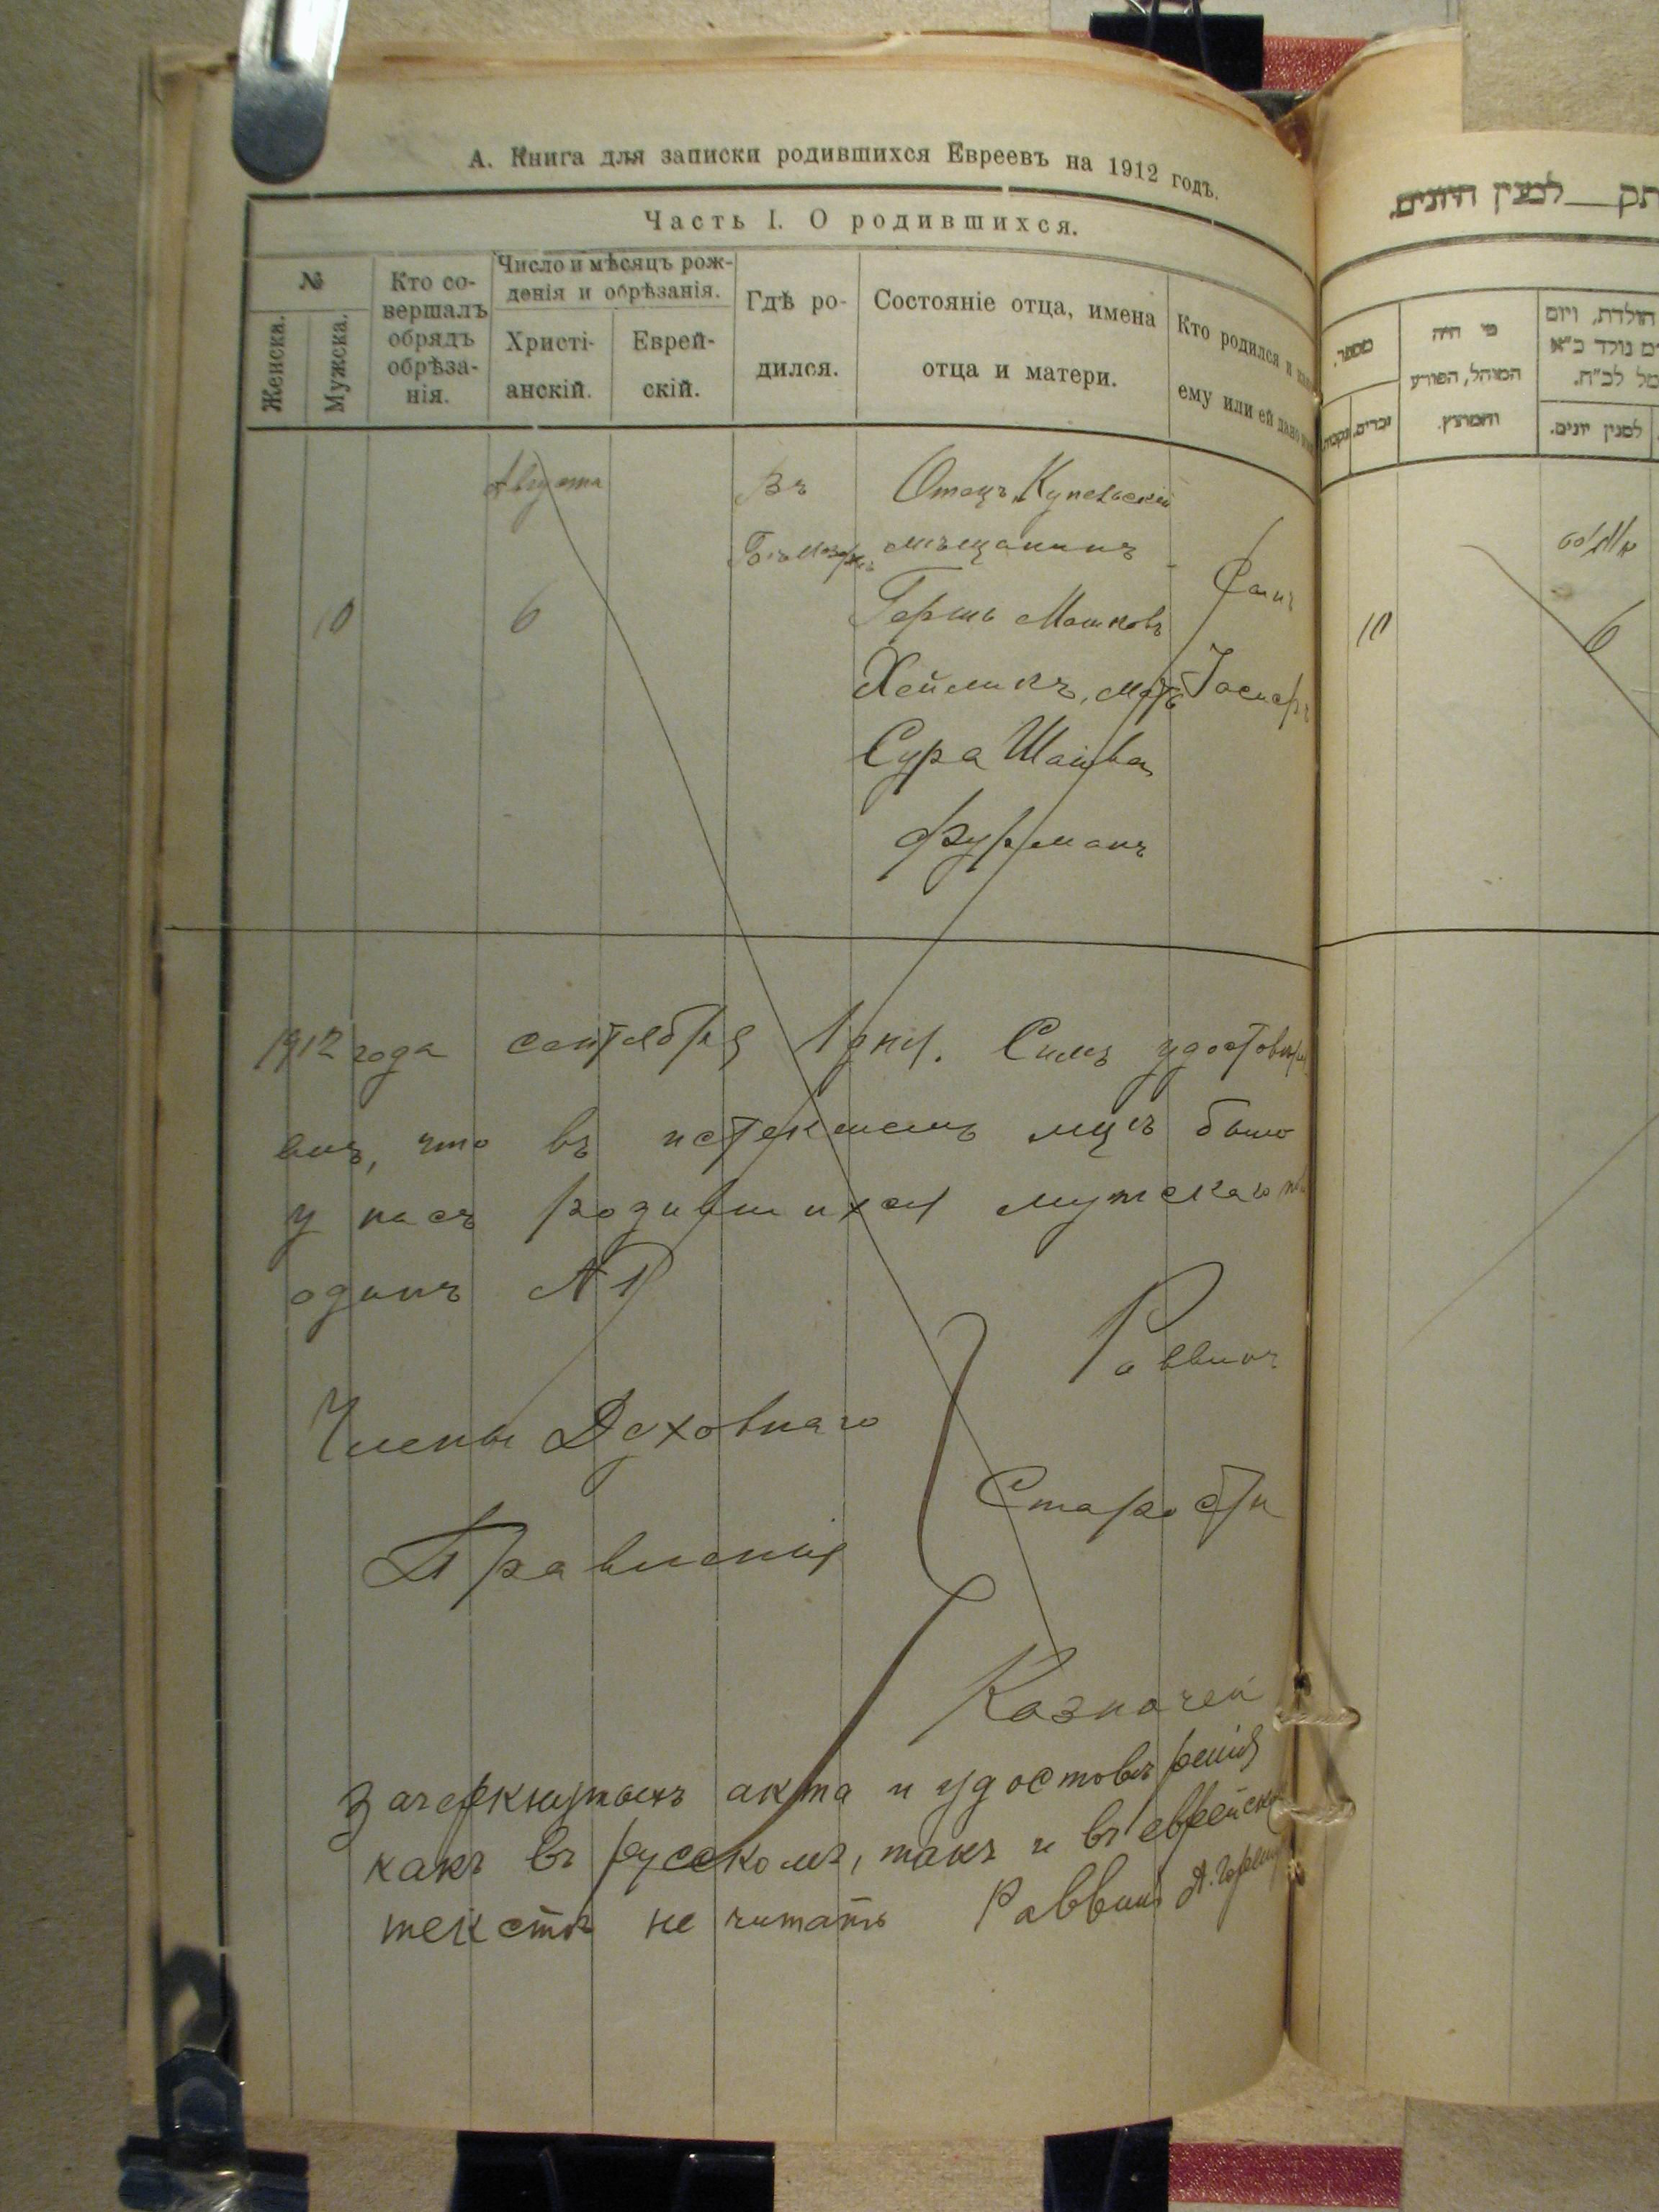 А. Книга для записки родившихся Евреевъ на 1912 годъ.
Часть I. О родившихся.
№
Женска.
Мужска.
Кто со-
вершалъ
обрядъ
обрѣза-
нія.
Число и мѣсяцъ рож-
денія и обрѣзанія.
Христі-
анскій.
Еврей-
скій.
Гдѣ ро-
дился.
Состояніе отца, имена
отца и матери.
Кто родился и
ему или ей дано
Августа
Въ
Отецъ Купельскій
мѣщанинъ
10
6
Гершь Машковъ
Хеймикъ, мать
Сура Шаива
Фурманъ
Сынъ
1912 года сентября 1 дня. Симъ удостовѣря
емъ, что въ истекшемъ мцѣ было
у насъ родившихся мужскаго
одинъ № 1
Раввинъ
Члены Духовнаго
Староста
Правленія
Казначей
Зачеркнутыхъ акта и удостовѣренія
какъ въ русскомъ, такъ и въ еврейском
текстѣ не читать Раввинъ
לסנין היונים.
מספר.
זכרים.
מי היה
המוהל, הפורע
והמוצץ.
הולדת, ויום
לסנין יונים.
10
6